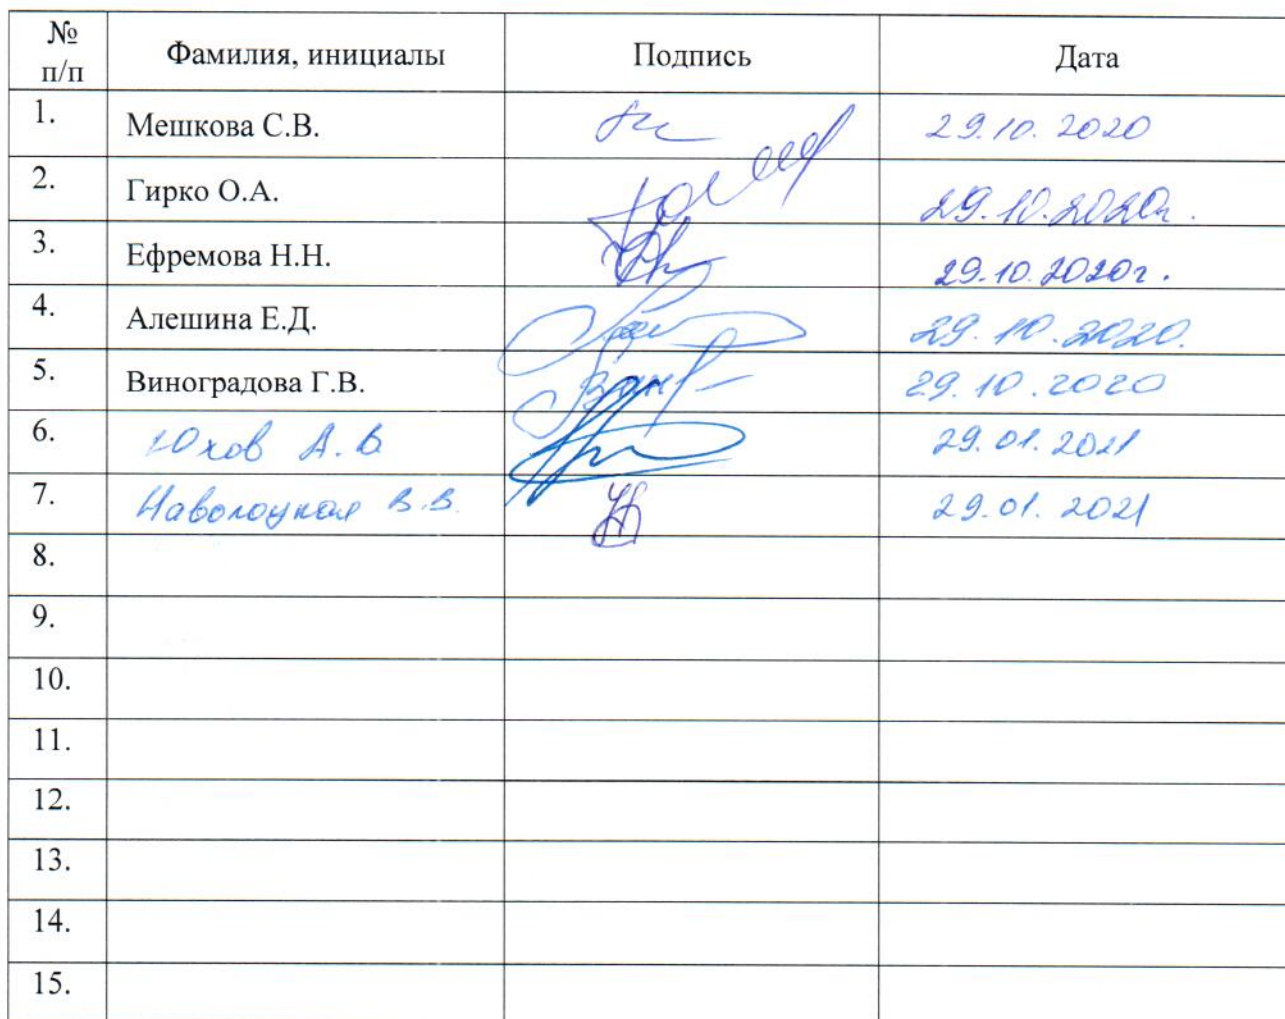 № п/п Фамилия, инициалы Подпись Дата
1. Мешкова С.В. 29.10.2020
2. Гирко О.А. 29.10.2020г.
3. Ефремова Н.Н. 29.10.2020г.
4. Алешина Е.Д. 29.10.2020.
5. Виноградова Г.В. 29.10.2020
6. Юхов А.В. 29.01.2021
7. Наволоцкая В.В. 29.01.2021
8.
9.
10.
11.
12.
13.
14.
15.